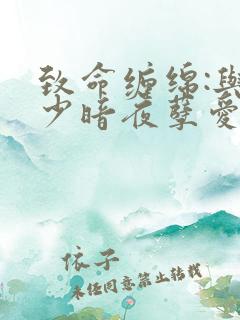 致命缠绵:与
少暗夜孽爱
依子
未经同意禁止转载